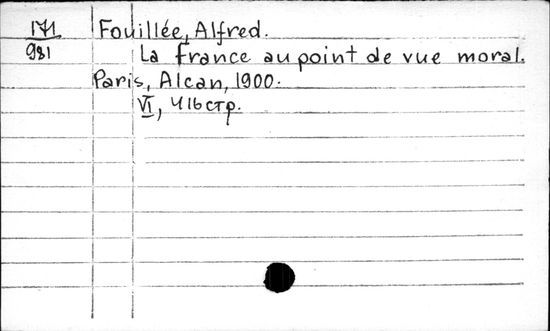 171 Fouillée, Alfred.
981 La France au point de vue moral.
Paris, Alcan, 1900.
VI, 416 стр.